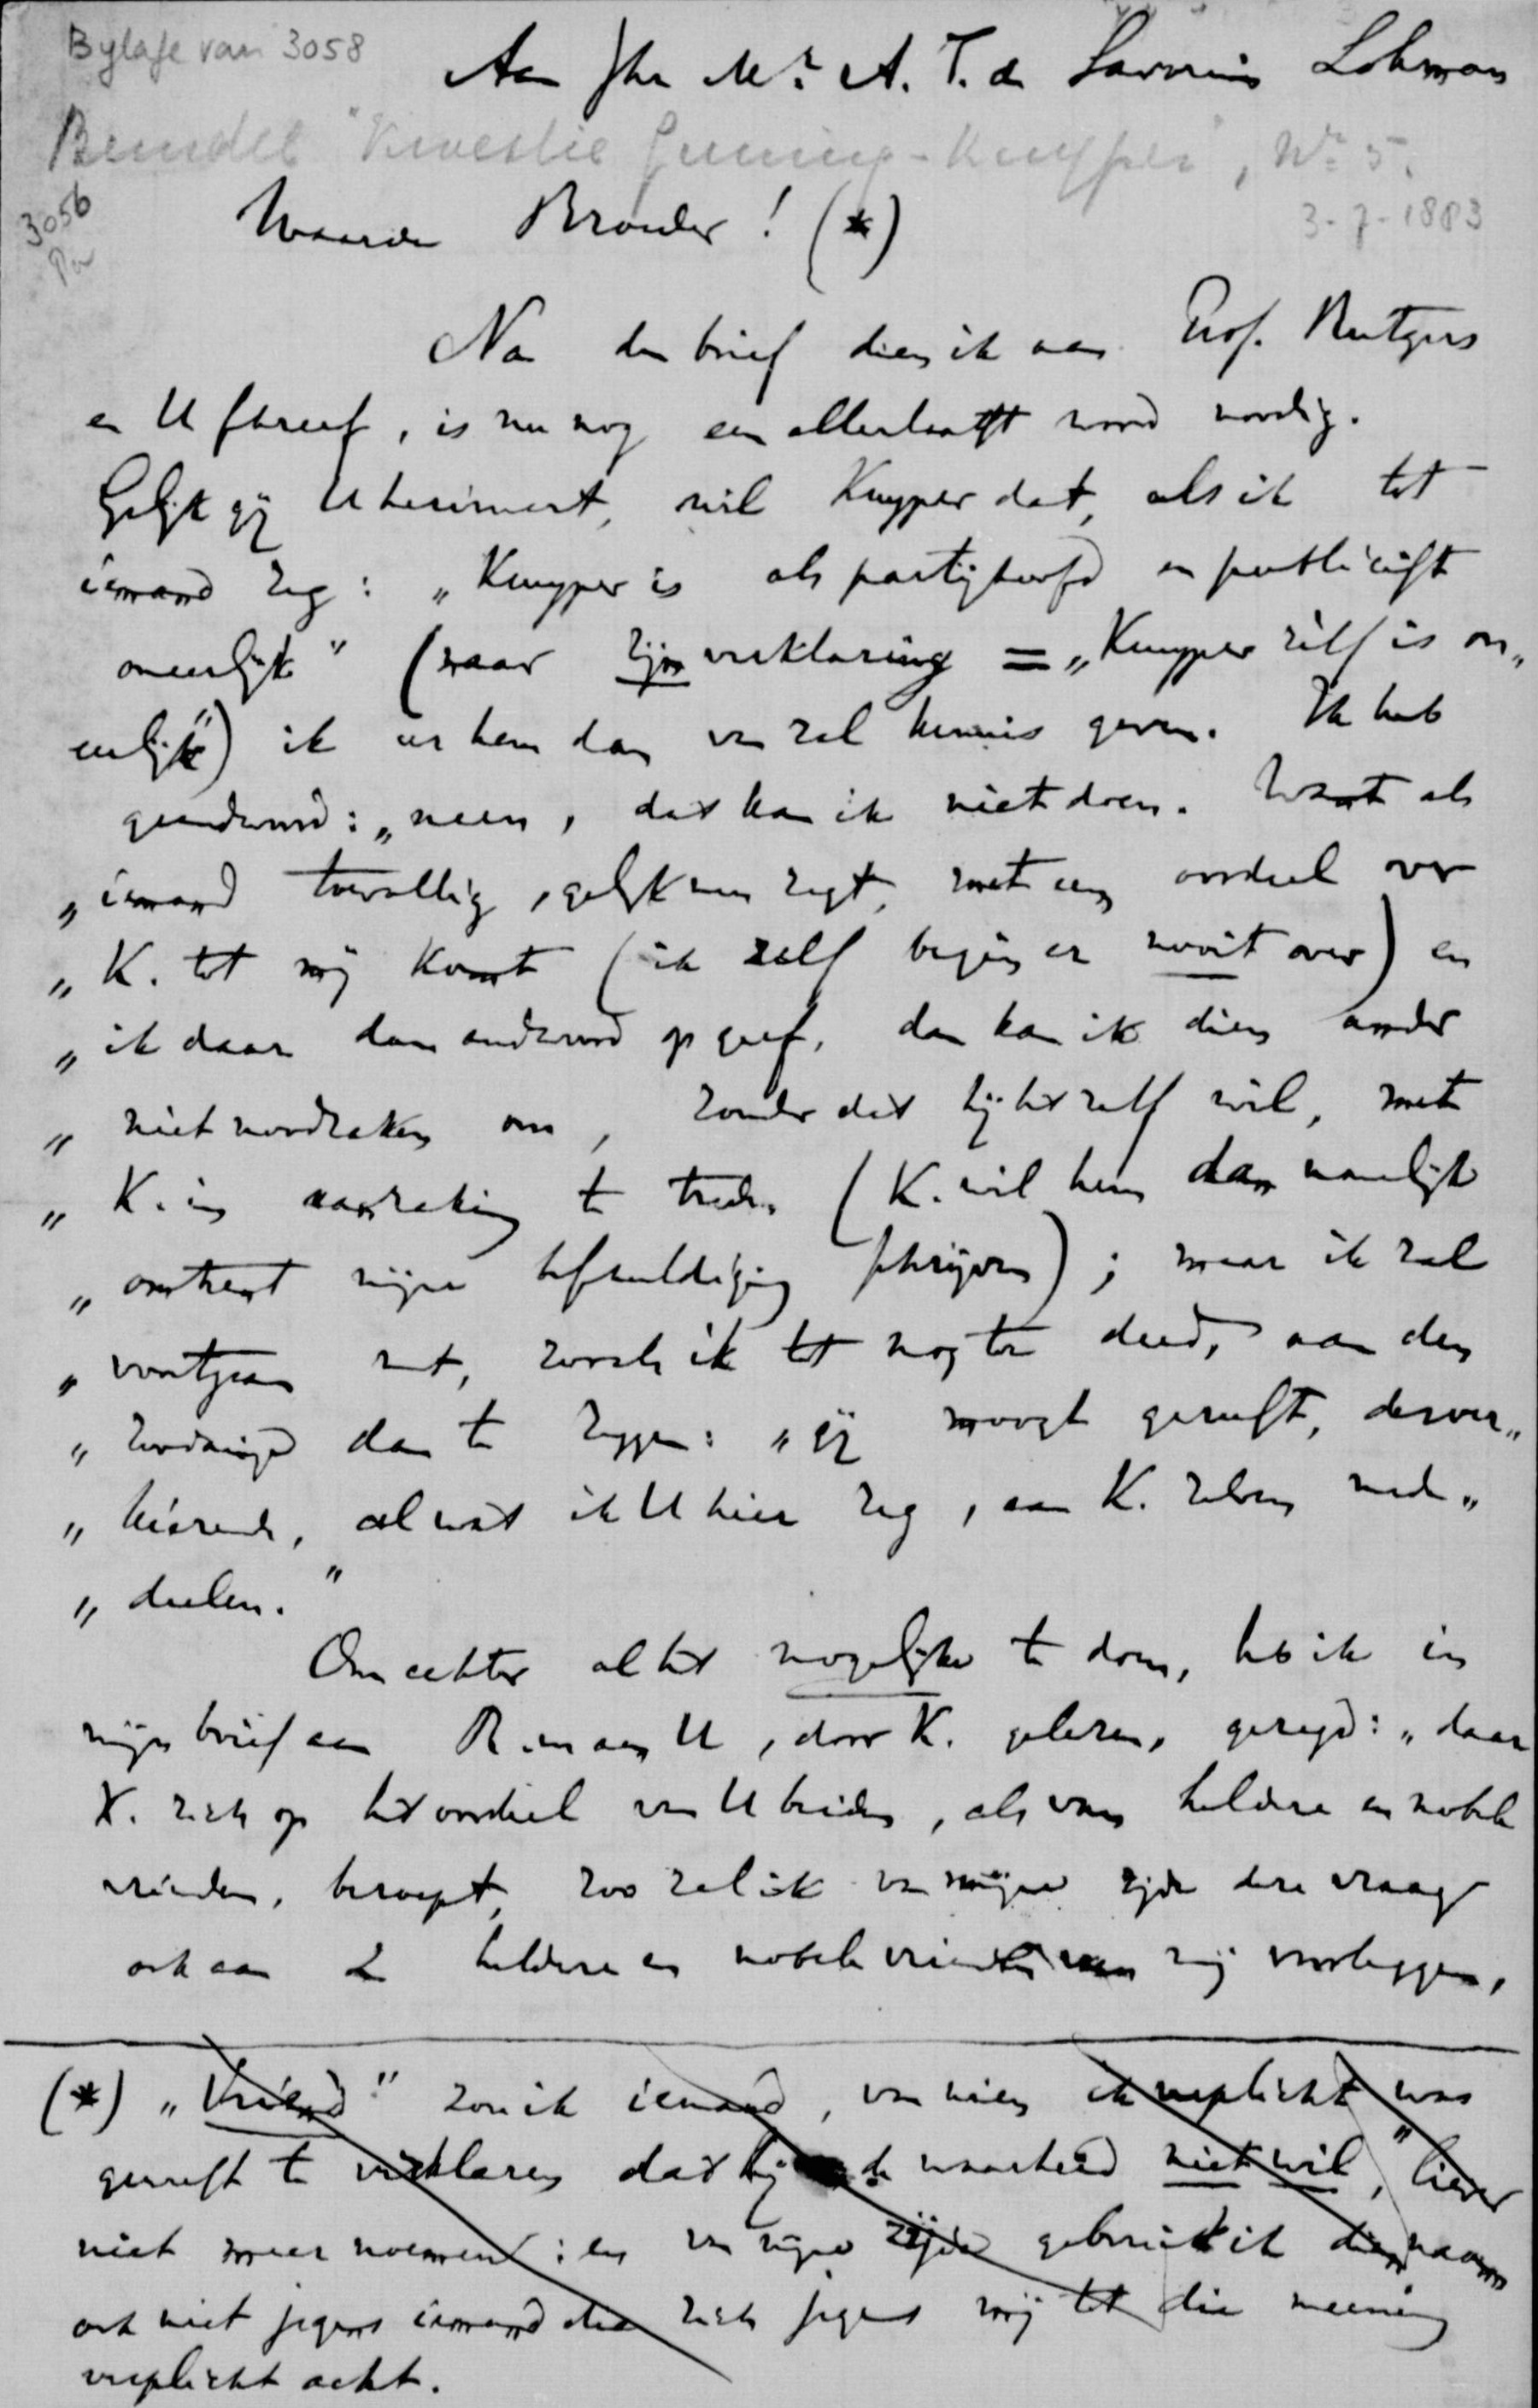 Bylage van 3058
Aan Jhr Mr. A. F. de Savornin Lohman
Bundel "Kwestie Gunning-Kuyper", No 5.
3056
3-7-1883
Waarde Broeder! (*)
Na den brief dien ik aan Prof. Rutgers
en U schreef, is nu nog een allerlaatst woord noodig.
Gelijk gij U herinnert, wil Kuyper dat, als ik tot
iemand zeg: „Kuyper is als partijhoofd en publicist
oneerlijk" (naar zijn verklaring = „Kuyper zelf is on„
eerlijk") ik er hem dan van zal kennis geven. Ik heb
geandwoord: „neen, dat kan ik niet doen. Want als
„iemand toevallig, gelijk men zegt, met een oordeel over
„K. tot mij komt (ik zelf begin er nooit over) en
„ik daar dan andwoord op geef, dan kan ik dien ander
„niet noodzaken om, zonder dat hij het zelf wil, met
„K. in aanraking te treden (K. wil hem dan namelijk
„omtrent mijne beschuldiging schrijven); maar ik zal
„voortgaan met, zooals ik tot nog toe deed, aan den
„zoodanige dan te zeggen: „gij moogt gerust, desver„
„kiezende, al wat ik U hier zeg, aan K. zelven mede„
„deelen."
Om echter al het mogelijke te doen, heb ik in
mijn brief aan R. en aan U, door K. gelezen, gezegd: „daar
K. zich op het oordeel van U beiden, als van heldere en nobele
vrienden, beroept, zoo zal ik van mijne zijde deze vraag
ook aan 2 heldere en nobele vrienden van mij voorleggen,
(*) „Vriend" zou ik iemand, van wien ik verplicht was
gerust te verklaren dat hij de waarheid niet wil," liever
niet meer noemen: en van mijne zijde gebruik ik dien naam
ook niet jegens iemand die zich jegens mij tot die meening
verplicht acht.